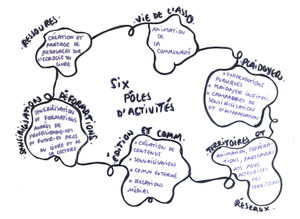 RESSOURCES.
CRÉATION ET
PARTAGE DE
RESSOURCES SUR
L'ÉCOLOGIE DU
LIVRE
VIE DE L'ASSO
ANIMATION
DE LA
COMMUNAUTÉ
PLAIDOYER.
• INTERVENTIONS
PUBLIQUES
• PLAIDOYER INSTIT.
• CAMPAGNES DE
SENSIBILISATION
ET D'INTERPELLATION
SIX
PÔLES
D'ACTIVITÉS
SENSIBILISATION & FORMATIONS.
SENSIBILISATION
ET FORMATIONS
AUPRÈS DE
PROFESSIONNEL·LES
ET FUTUR·ES PROS
DU LIVRE ET DE
LA LECTURE
ÉDITION ET COMM.
• CRÉATION DE
CONTENUS
• SENSIBILISATION
• COMM INTERNE
• RELATIONS
MÉDIAS
TERRITOIRES ET
RÉSEAUX.
ANIMATION, COOPÉRA-
TIONS, PARTENARI-
ATS AVEC
ACTEUR·ICES
DES
TERRITOIRES